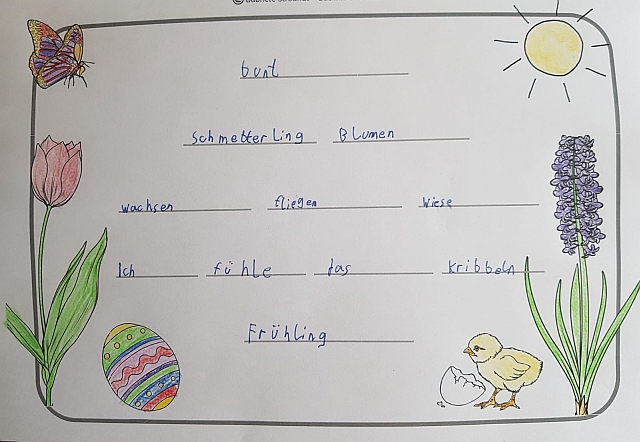 bunt
Schmetterling Blumen
wachsen fliegen Wiese
Ich fühle das Kribbeln
Frühling